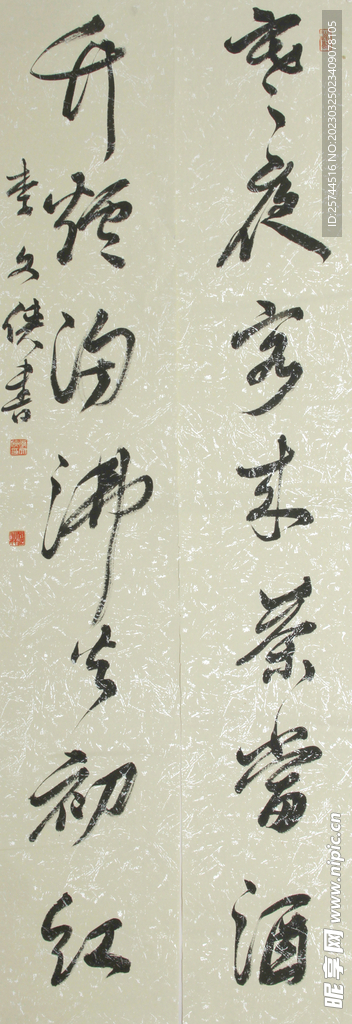 寒夜客来茶當酒
竹爐湯沸火初红
李文侠書
ID:25744516 NO:20230325023409078105
昵享网 www.nipic.cn